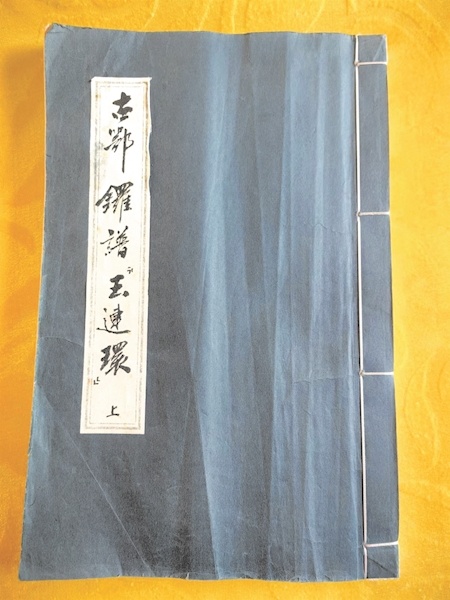 古鄂鑼譜『玉連環』上